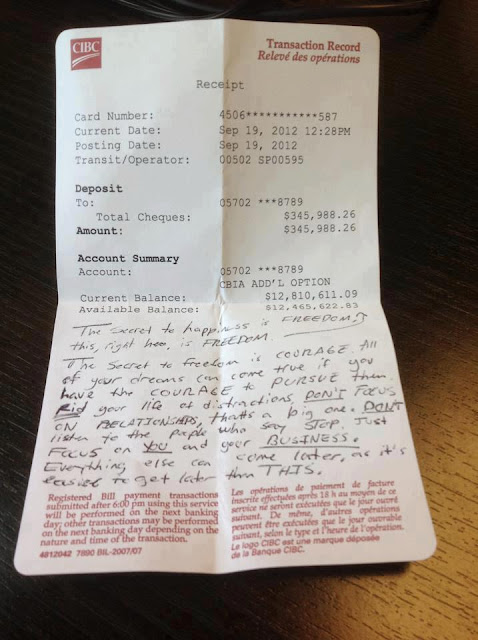 CIBC
Transaction Record
Relevé des opérations
Receipt
Card Number: 4506***********587
Current Date: Sep 19, 2012 12:28PM
Posting Date: Sep 19, 2012
Transit/Operator: 00502 SP00595
Deposit
To: 05702 ***8789
Total Cheques: $345,988.26
Amount: $345,988.26
Account Summary
Account: 05702 ***8789
CBIA ADD'L OPTION
Current Balance: $12,810,611.09
Available Balance: $12,465,622.83
The secret to happiness is FREEDOM,
this, right here, is FREEDOM.
The secret to freedom is COURAGE. All
of your dreams can come true if you
have the COURAGE to PURSUE them.
Rid your life of distractions, DON'T FOCUS
ON RELATIONSHIPS, that's a big one. DON'T
listen to the people who say STOP. Just
FOCUS on YOU and your BUSINESS.
Everything else can come later, as it's
easier to get later than THIS.
Registered Bill payment transactions
submitted after 6:00 pm using this service
will be performed on the next banking
day; other transactions may be performed
on the next banking day depending on the
nature and time of the transaction.
4812042 7890 BIL-2007/07
Les opérations de paiement de facture
inscrite effectuées après 18 h au moyen de ce
service ne seront exécutées que le jour ouvré
suivant. De même, d'autres opérations
peuvent être exécutées que le jour ouvrable
suivant, selon le type et l'heure de l'opération.
Le logo CIBC est une marque déposée
de la Banque CIBC.